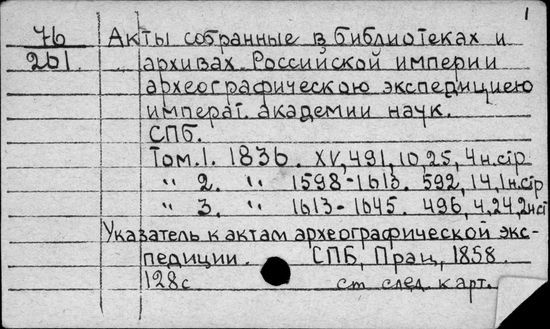 1
76 Акты собранные в библиотеках и
261 архивах Российской империи
археографическою экспедициею
императ. академии наук.
СПб.
Том. 1. 1836. XV, 491, 10, 25, 4 н. стр
" 2. " 1598-1613. 592, 14, 1 н. стр
" 3. " 1613-1645. 496, 4, 24, 2 н ст
Указатель к актам археографической экс-
педиции. СПБ, Прац, 1858.
128 с ст след. карт.